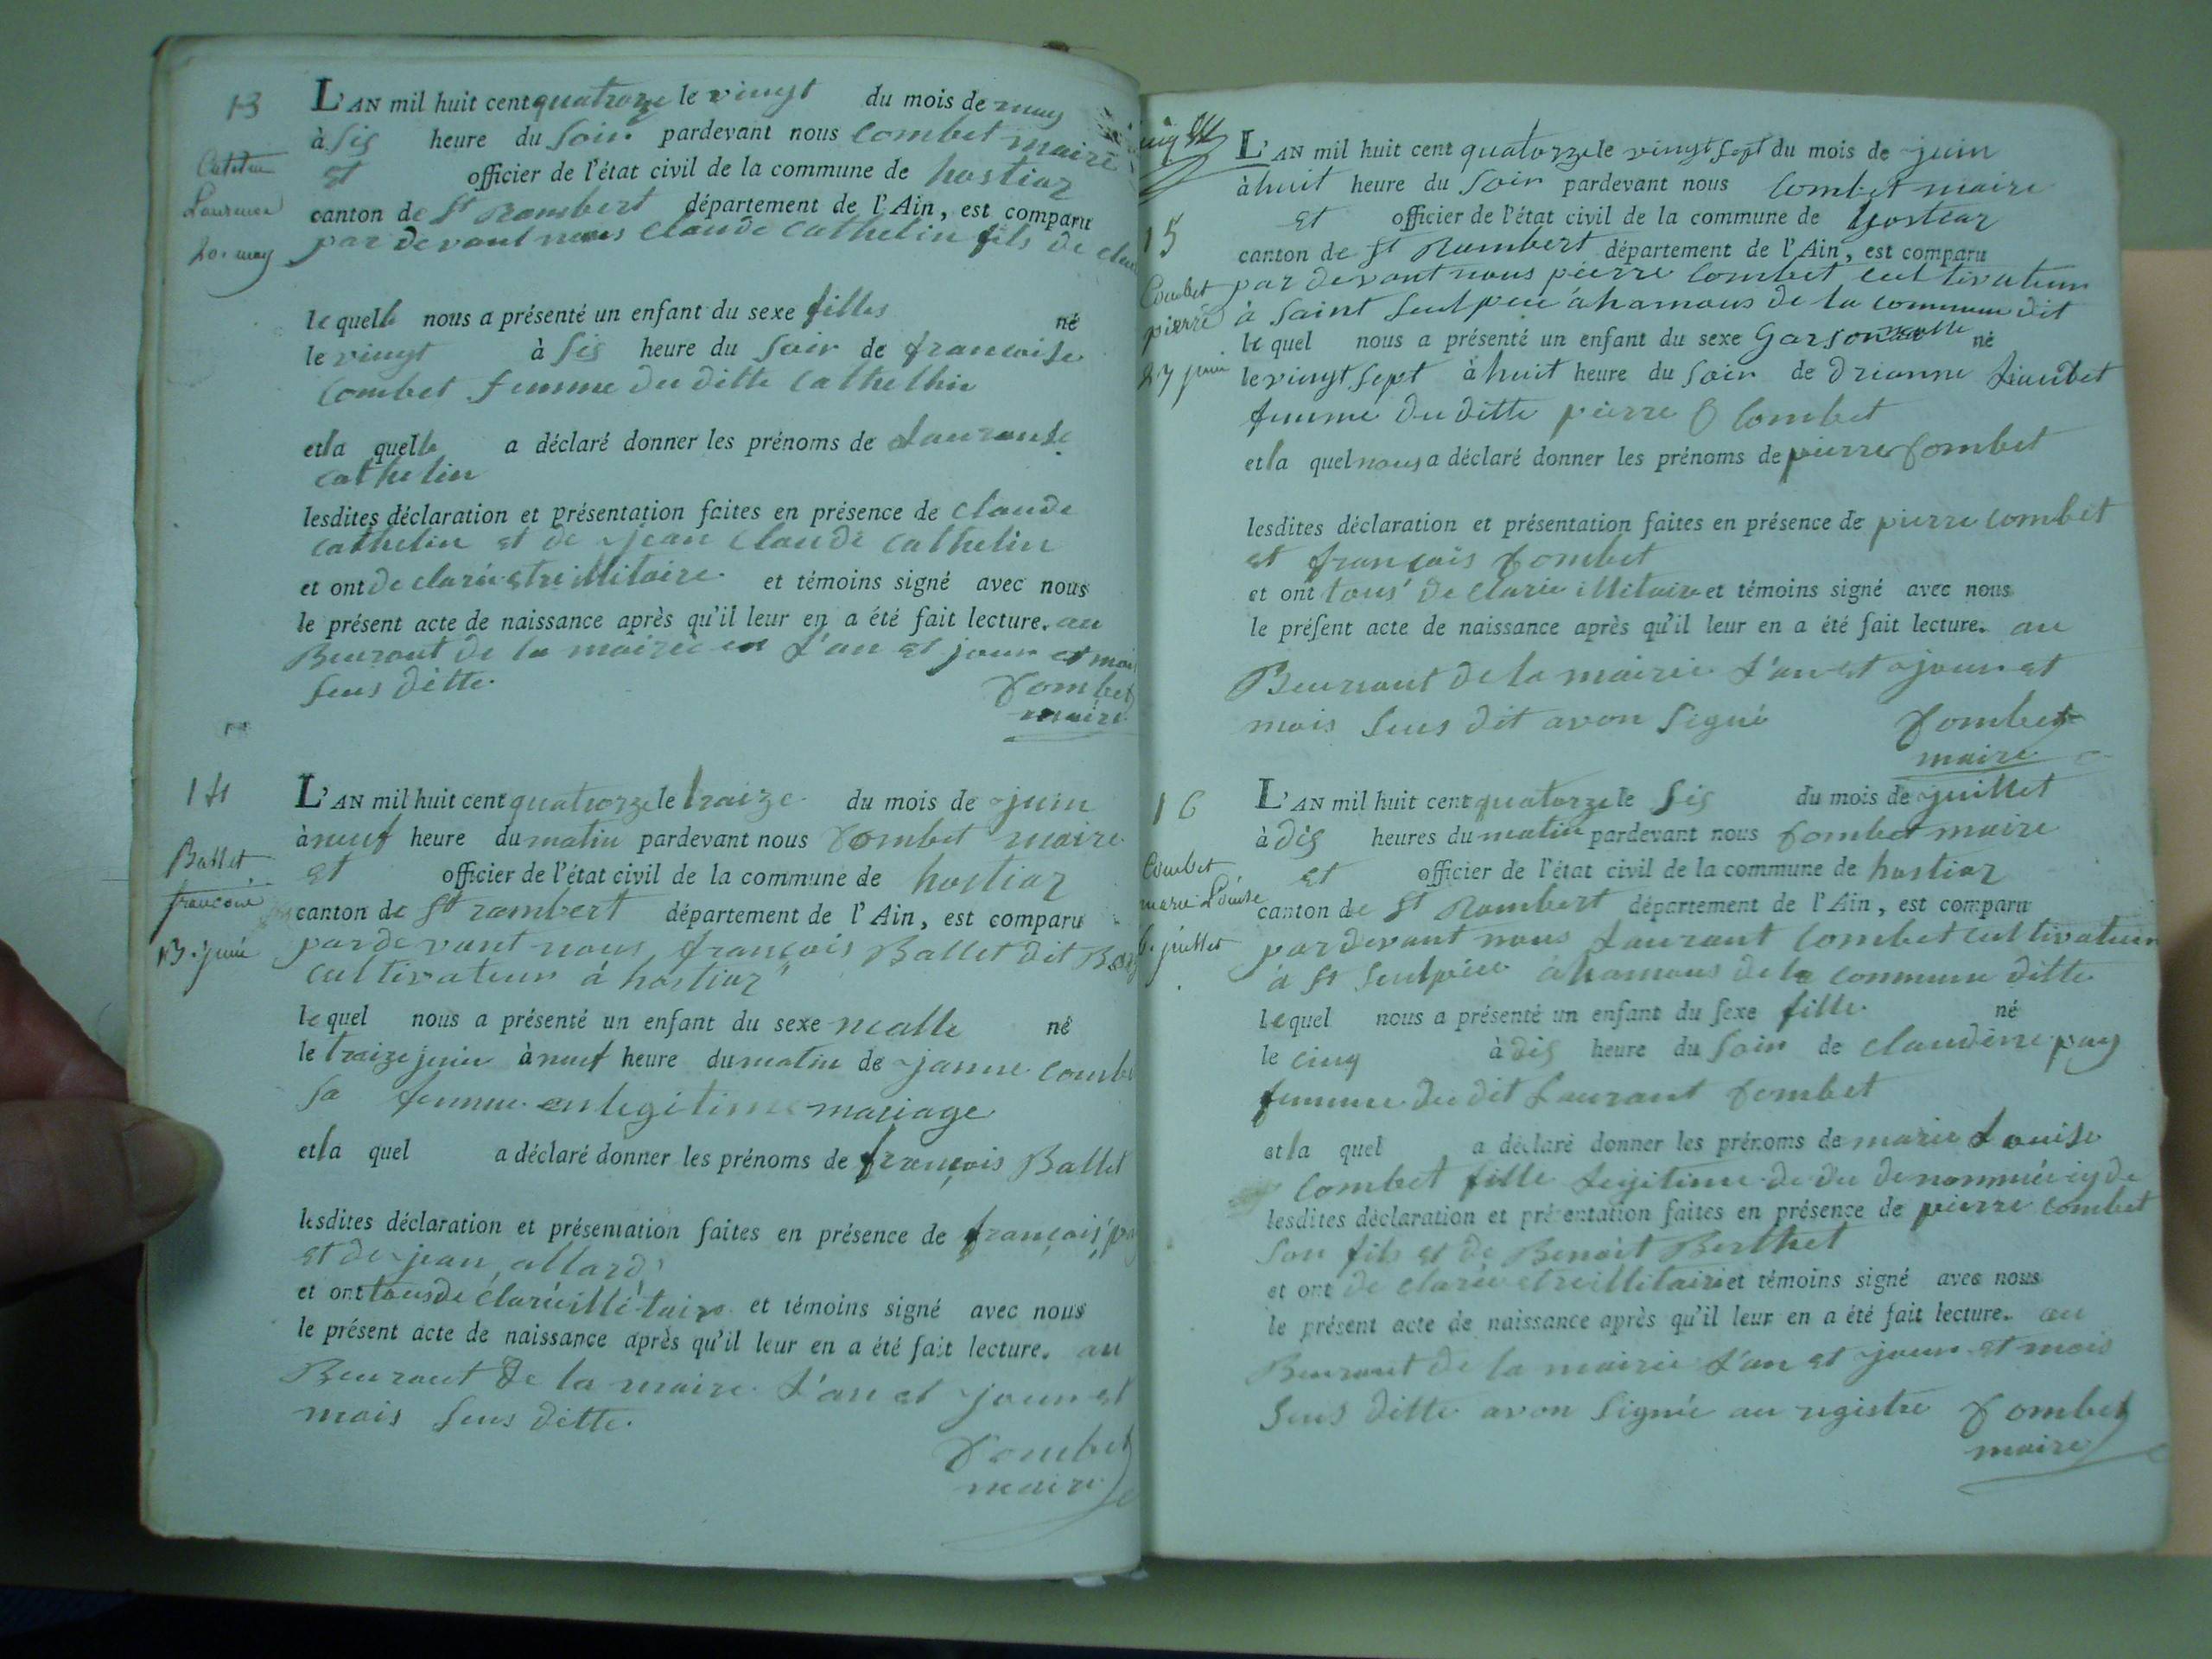 13
Laurence
20. may
L'AN mil huit cent quatorze le vingt du mois de may
à sis heure du soir pardevant nous Combet maire
et officier de l'état civil de la commune de hostiaz
canton de St Rambert département de l'Ain, est comparu
par devant nous Claude Cathelin fils de
le quelle nous a présenté un enfant du sexe filles né
le vingt à sis heure du soir de francoise
Combet femme du ditte Cathelin
et la quelle a déclaré donner les prénoms de Lauranse
Cathelin
lesdites déclaration et présentation faites en présence de Claude
Cathelin et de jean Claude Cathelin
et ont de clarée etre illitaire et témoins signé avec nous
le présent acte de naissance après qu'il leur en a été fait lecture. au
Beuraut de la mairie L'an et jour et mois
sus ditte.
Combet
maire
14
Ballet
françois
13. juin
L'AN mil huit cent quatorze le traize du mois de juin
à neuf heure du matin pardevant nous Combet maire
et officier de l'état civil de la commune de hostiaz
canton de St rambert département de l'Ain, est comparu
par devant nous françois Ballet dit
cultivateur à hostiaz
le quel nous a présenté un enfant du sexe malle né
le traize juin à neuf heure du matin de janne Combet
sa femme en legitime mariage
et la quel a déclaré donner les prénoms de françois Ballet
lesdites déclaration et présentation faites en présence de françois
et de jean allard
et ont tous de clarée illitaire et témoins signé avec nous
le présent acte de naissance après qu'il leur en a été fait lecture. au
Beuraut de la maire L'an et jour et
mois sus ditte.
Combet
maire
15
Combet
pierre
27 juin
L'AN mil huit cent quatorze le vingt sept du mois de juin
à huit heure du soir pardevant nous Combet maire
et officier de l'état civil de la commune de hostiaz
canton de St Rambert département de l'Ain, est comparu
par devant nous pierre Combet cultivateur
à saint Sulpice à hamous de la commune dit
le quel nous a présenté un enfant du sexe Garson malle né
le vingt sept à huit heure du soir de
femme du ditte pierre Combet
et la quel nous a déclaré donner les prénoms de pierre Combet
lesdites déclaration et présentation faites en présence de pierre Combet
et françois Combet
et ont tous de clarée illitaire et témoins signé avec nous
le présent acte de naissance après qu'il leur en a été fait lecture. au
Beuraut de la mairie L'an et jour et
mois sus dit avon signé Combet
maire
16
Combet
marie Louise
6. juillet
L'AN mil huit cent quatorze le sis du mois de juillet
à dis heures du matin pardevant nous Combet maire
et officier de l'état civil de la commune de hostiaz
canton de St Rambert département de l'Ain, est comparu
par devant nous Laurant Combet cultivateur
à St Sulpice à hamous de la commune ditte
le quel nous a présenté un enfant du sexe fille né
le cinq à dis heure du soir de Claudine pay
femme du dit Laurant Combet
et la quel a déclaré donner les prénoms de marie Louise
Combet fille Legitime de du denommée
lesdites déclaration et présentation faites en présence de pierre Combet
son fils et de Benoit Berthet
et ont de clarée etre illitaire et témoins signé avec nous
le présent acte de naissance après qu'il leur en a été fait lecture. au
Beuraut de la mairie L'an et jour et mois
sus ditte avon signée au registre Combet
maire